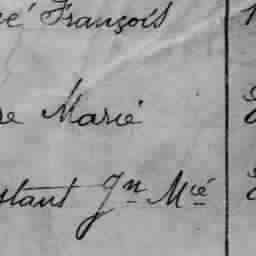 é François
re Marié
stant Jn Mié